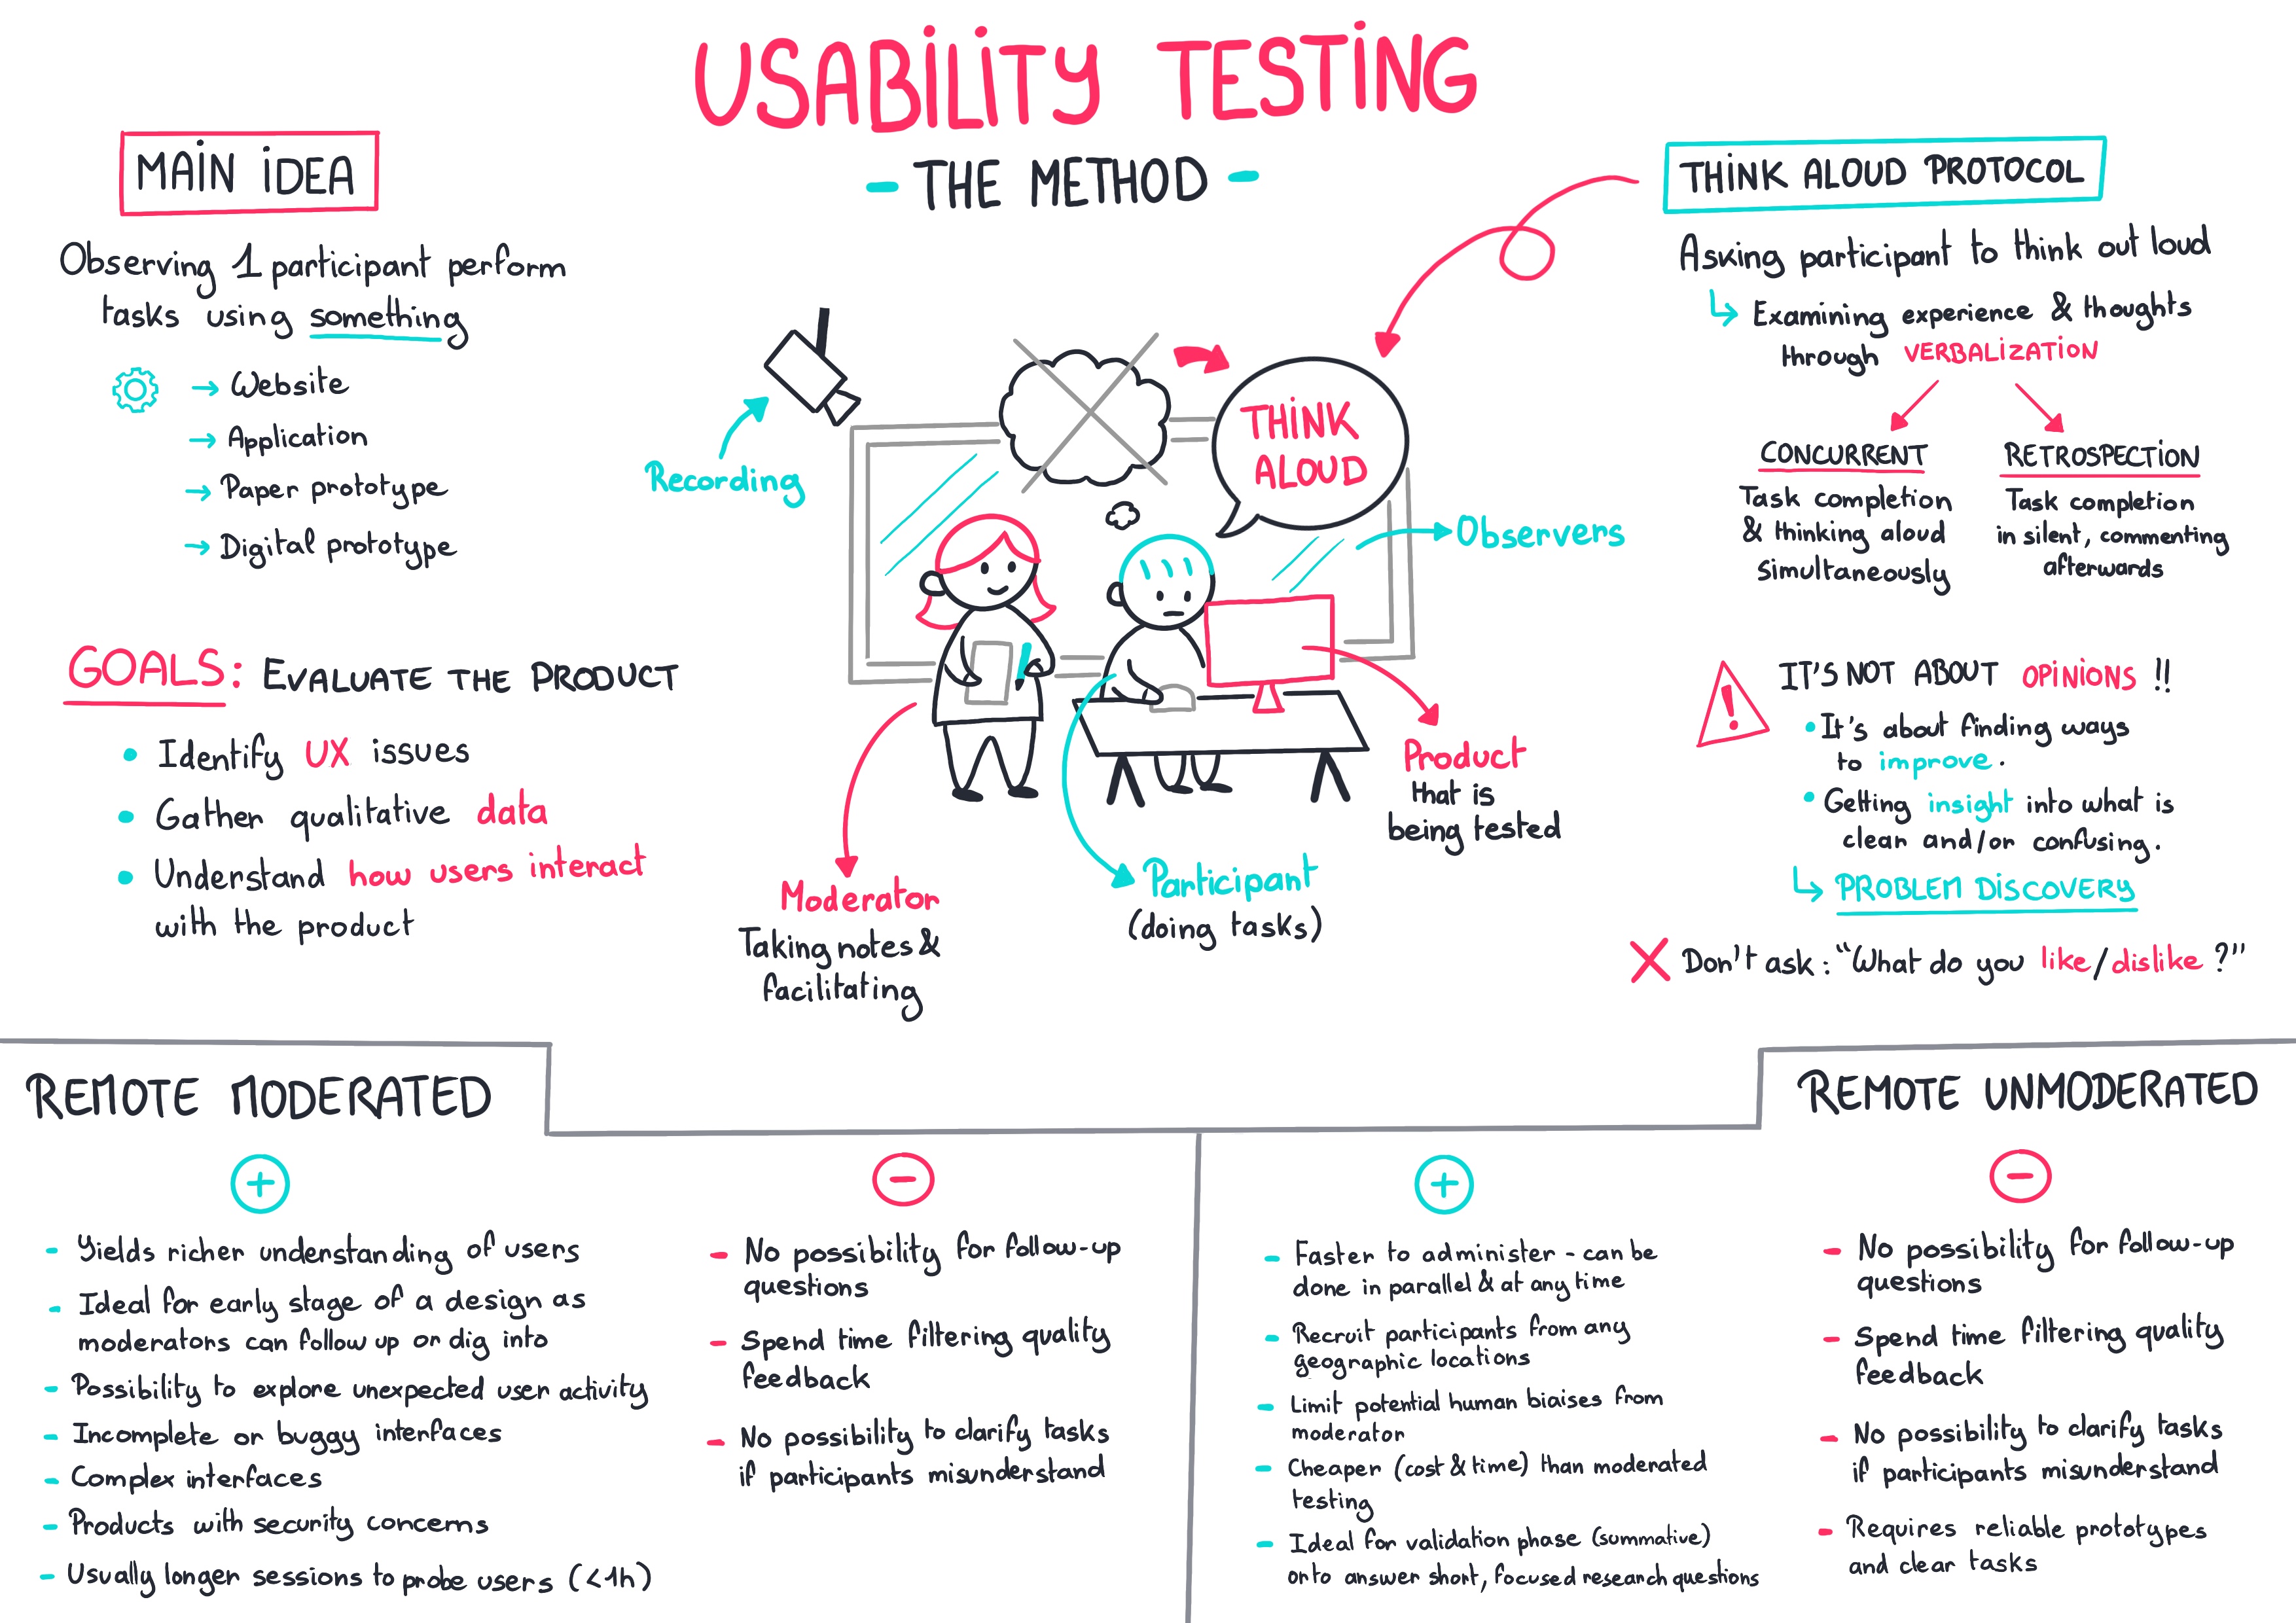 USABILITY TESTING
- THE METHOD -
MAIN IDEA
Observing 1 participant perform
tasks using something
→ Website
→ Application
→ Paper prototype
→ Digital prototype
GOALS: EVALUATE THE PRODUCT
• Identify UX issues
• Gather qualitative data
• Understand how users interact
with the product
Recording
THINK
ALOUD
Observers
Product
that is
being tested
Participant
(doing tasks)
Moderator
Taking notes &
facilitating
THINK ALOUD PROTOCOL
Asking participant to think out loud
↳ Examining experience & thoughts
through VERBALIZATION
CONCURRENT
Task completion
& thinking aloud
simultaneously
RETROSPECTION
Task completion
in silent, commenting
afterwards
!
IT'S NOT ABOUT OPINIONS !!
• It's about finding ways
to improve.
• Getting insight into what is
clean and/or confusing.
↳ PROBLEM DISCOVERY
X Don't ask: "What do you like/dislike?"
REMOTE MODERATED
+
- Yields richer understanding of users
- Ideal for early stage of a design as
moderators can follow up or dig into
- Possibility to explore unexpected user activity
- Incomplete or buggy interfaces
- Complex interfaces
- Products with security concerns
- Usually longer sessions to probe users (<1h)
-
- No possibility for follow-up
questions
- Spend time filtering quality
feedback
- No possibility to clarify tasks
if participants misunderstand
REMOTE UNMODERATED
+
- Faster to administer - can be
done in parallel & at any time
- Recruit participants from any
geographic locations
- Limit potential human biaises from
moderator
- Cheaper (cost & time) than moderated
testing
- Ideal for validation phase (summative)
or to answer short, focused research questions
-
- No possibility for follow-up
questions
- Spend time filtering quality
feedback
- No possibility to clarify tasks
if participants misunderstand
- Requires reliable prototypes
and clear tasks